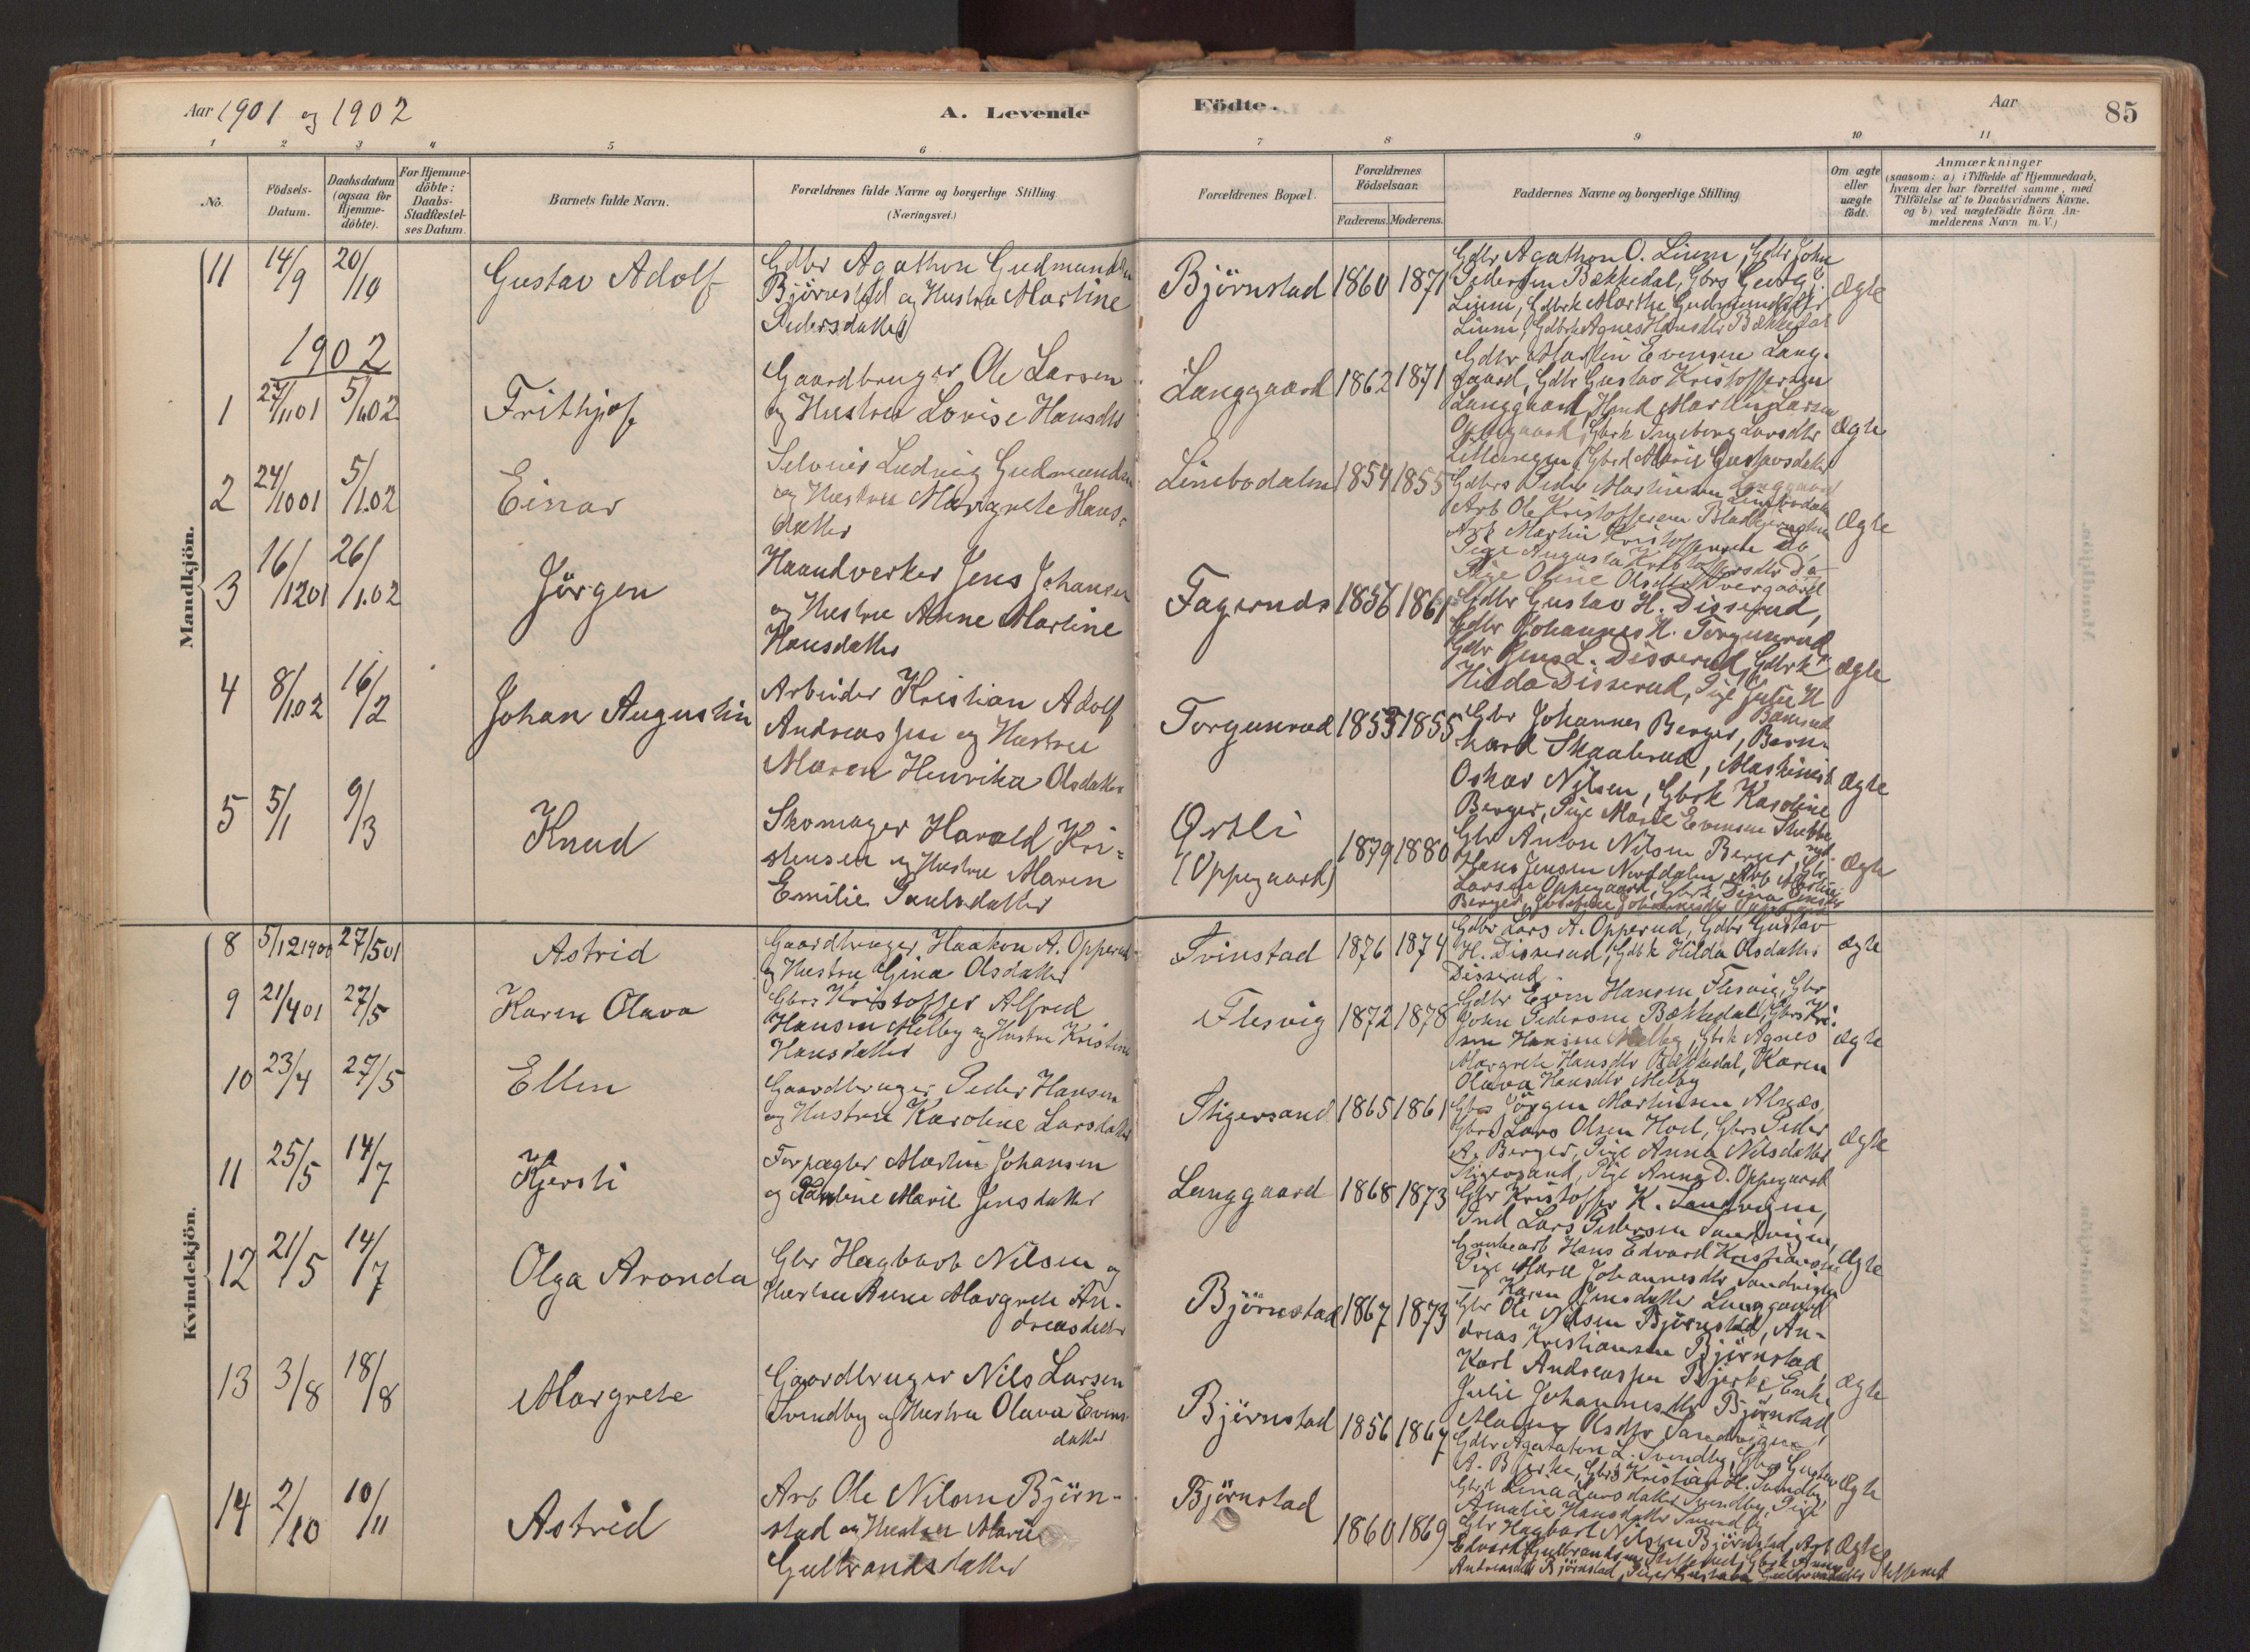 Aar 1901 og 1902
A. Levende
Födte.
Aar
85
1 2 3 4 5 6 7 8 9 10 11
No.
Födsels-
Datum.
Daabsdatum
(ogsaa for
Hjemme-
döbte).
For Hjemme-
döbte:
Daabs-
Stadfæstel-
ses Datum.
Barnets fulde Navn.
Forældrenes fulde Navne og borgerlige Stilling
(Næringsvei.)
Forældrenes Bopæl.
Forældrenes
Födselsaar.
Faderens. Moderens.
Faddernes Navne og borgerlige Stilling
Om ægte
eller
uægte
födt.
Anmærkninger
(saasom: a) i Tilfælde af Hjemmedaab,
hvem der har forrettet samme, med
Tilföielse af to Daabsvidners Navne,
og b) ved uægtefödte Börn An-
melderens Navn m. V.)
Mandkjön.
11 14/9 20/10 Gustav Adolf
Gdbr Agathon Gudmundsen
Björnstad og Hustru Martine
Pedersdatter
Björnstad 1860 1871
Gdbr Agathon O. Linm, Gdbr John
Pedersen Bækkedal, Gbrs Georg
Linm, Gdbrk Marthe Gudmundsdtr
Linm, Gdbrk Agnes Hansdtr Bækkedal
Ægte
1902
1 27/11 01 5/1 02 Frithjof
Gaardbruger Ole Larsen
og Hustru Lovise Hansdtr
Langgaard 1862 1871
Gdbr Martin Evensen Lang-
gaard, Gdbr Gustav Kristoffersen
Langgaard, Martin Larsen
Oppegaard, Gbrk Ingeborg Larsdtr
Marie Gustavsdatter
Langgaard
Ægte
2 24/10 01 5/1.02 Einar
Selveier Ludvig Gudmundsen
og Hustru Margrete Hans-
datter
Linebodalen 1854 1855
Gdbrs Peder Martinsen Linebodalen
Arb Ole Kristoffersen
Arb Martin Kristoffersen Do,
Pige Augusta Kristoffersdtr Do
Pige Oline Olsdtr Overgaard
Ægte
3 16/12 01 26/1.02 Jörgen
Haandverker Jens Johansen
og Hustru Anne Martine
Hansdatter
Fagernds 1856 1861
Gdbr Gustav H. Disserud,
Gdbr Johannes H. Torgunrud,
Gdbr Jens L. Disserud, Gdbrk
Hilda Disserud, Pige Julie H
Ægte
4 8/1.02 16/2 Johan Augustin
Arbeider Kristian Adolf
Andreassen og Hustru
Maren Henrika Olsdatter
Torgunrud 1853 1855
Gbr Johannes Berger, Bern-
hard Skaalerud, Maskinist
Oskar Nilsen, Gbrk Karoline
Berger, Pige Marie Evensen Stubbe-
rud.
Ægte
5 5/1 9/3 Knud
Skomager Harald Kri-
stensen og Hustru Maren
Emilie Paulsdatter
Østli
(Oppegaard)
1879 1880
Gbr Anton Nilsen Berger, Gbr
Hans Jensen Norddalen, Arb Martin
Larsen Oppegaard, Gbrk Dina
Berger,
Ægte
Kvindekjön.
8 5/12 1900 27/5 01 Astrid
Gaardbruger Haakon A. Opperud
og Hustru Gina Olsdatter
Tvinstad 1876 1874
Gdbr Lars A. Opperud, Gdbr Gustav
H. Disserud, Gdbk Hilda Olsdatter
Disserud.
Ægte
9 21/4 01 27/5 Karen Olava
Gbrs Kristoffer Alfred
Hansen Melby og Hustru Kristine
Hansdatter
Flesvig 1872 1878
Gdbr Even Hansen Flesvig, Gbr
John Pedersen Bækkedal, Gbrs Kri-
Hansen Melby, Gbrk Agnes
Margrete Hansdtr Bækkedal, Karen
Olava Hansdtr Melby
Ægte
10 23/4 27/5 Ellen
Gaardbruger Peder Hansen
og Hustru Karoline Larsdatter
Stigersand 1865 1861
Gbrs Jörgen Martinsen Alnæs,
Gbrs Lars Olsen Hoel, Gbrs Peder
A. Berger, Pige Anna Nilsdatter
Stigersand, Pige Anna D. Oppegaard
Ægte
11 25/5 14/7 Kjersti
Forpagter Martin Johansen
og Pauline Marie Jensdatter
Langgaard 1868 1873
Gbr Kristoffer K. Sandvigen,
Ind Lars Pedersen Sandvigen,
Grubearb Hans Edvard Kristiansen
Pige Marie Johannesdtr Sandvigen
Karen Jensdatter Langgaard
Ægte
12 21/5 14/7 Olga Aronda
Gbr Hagbart Nilsen og
Hustru Anne Margrete An-
dreasdatter
Björnstad 1867 1873
Gbr Ole Nilsen Björnstad, An-
dreas Kristiansen Björnstad,
Karl Andreassen Bjerke, Enke
Julie Johannesdtr Björnstad,
Maren Olsdtr Sandvigen,
Ægte
13 3/8 18/8 Margrete
Gaardbruger Nils Larsen
Svendby og Hustru Olava Evens-
datter
Björnstad 1856 1867
Gdbr Agathon L. Svendby, Gbrs Gustav
A. Bjerke, Gbrs Kristian H. Svendby,
Gbrk Lina Larsdatter Svendby, Pige
Amalie Hansdatter Svendby
Ægte
14 2/10 10/11 Astrid
Arb Ole Nilsen Björn-
stad og Hustru Marie
Gulbrandsdatter
Björnstad 1860 1869
Gbr Hagbart Nilsen Björnstad, Arb
Edvard Gulbrandsen Sletterud, Gbrk Anne
Andreasdtr Björnstad, Pige Gustava Gulbrandsdtr Sletterud
Ægte